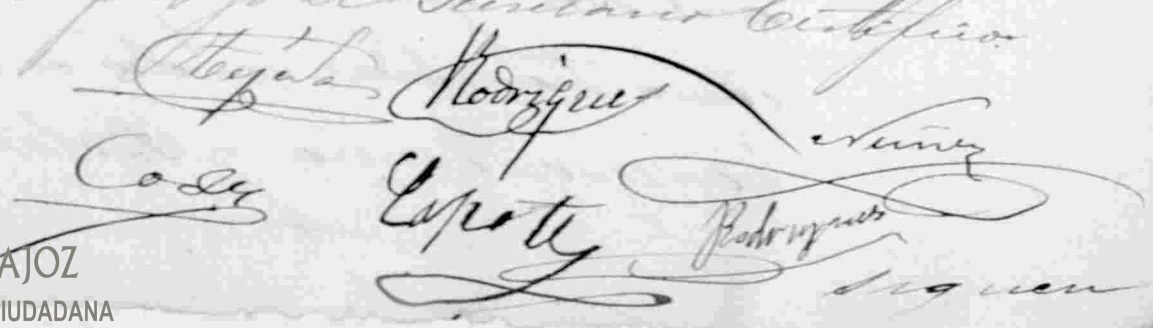 Secretario Certifico
Tejada Rodrigues
Nuñez
Codes Zapata
Rodrigues
Siguen
AJOZ
IUDADANA